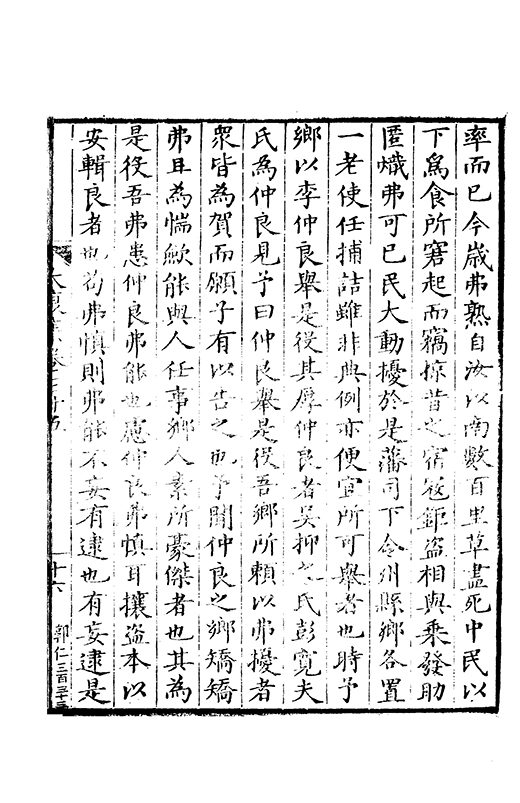 率而已今歲弗熟自汝以南數百里草盡死中民以
下為食所窘起而竊掠昔之宿寇鉅盜相與乘發助
匿熾弗可已民大動擾於是藩司下令州縣鄉各置
一老使任捕詰雖非典例亦便宜所可舉者也時予
鄉以李仲良舉是役其厚仲良者吳抑之氏彭寬夫
氏為仲良見予曰仲良舉是役吾鄉所賴以弗擾者
眾皆為賀而願子有以告之也予聞仲良之鄉矯矯
弗且為惴歉能與人任事鄉人素所豪傑者也其為
是役吾弗患仲良弗能也慮仲良弗慎耳攘盜本以
安輯良者也苟弗慎則弗能不妄有逮也有妄逮是
十六
郭仁三百三十三